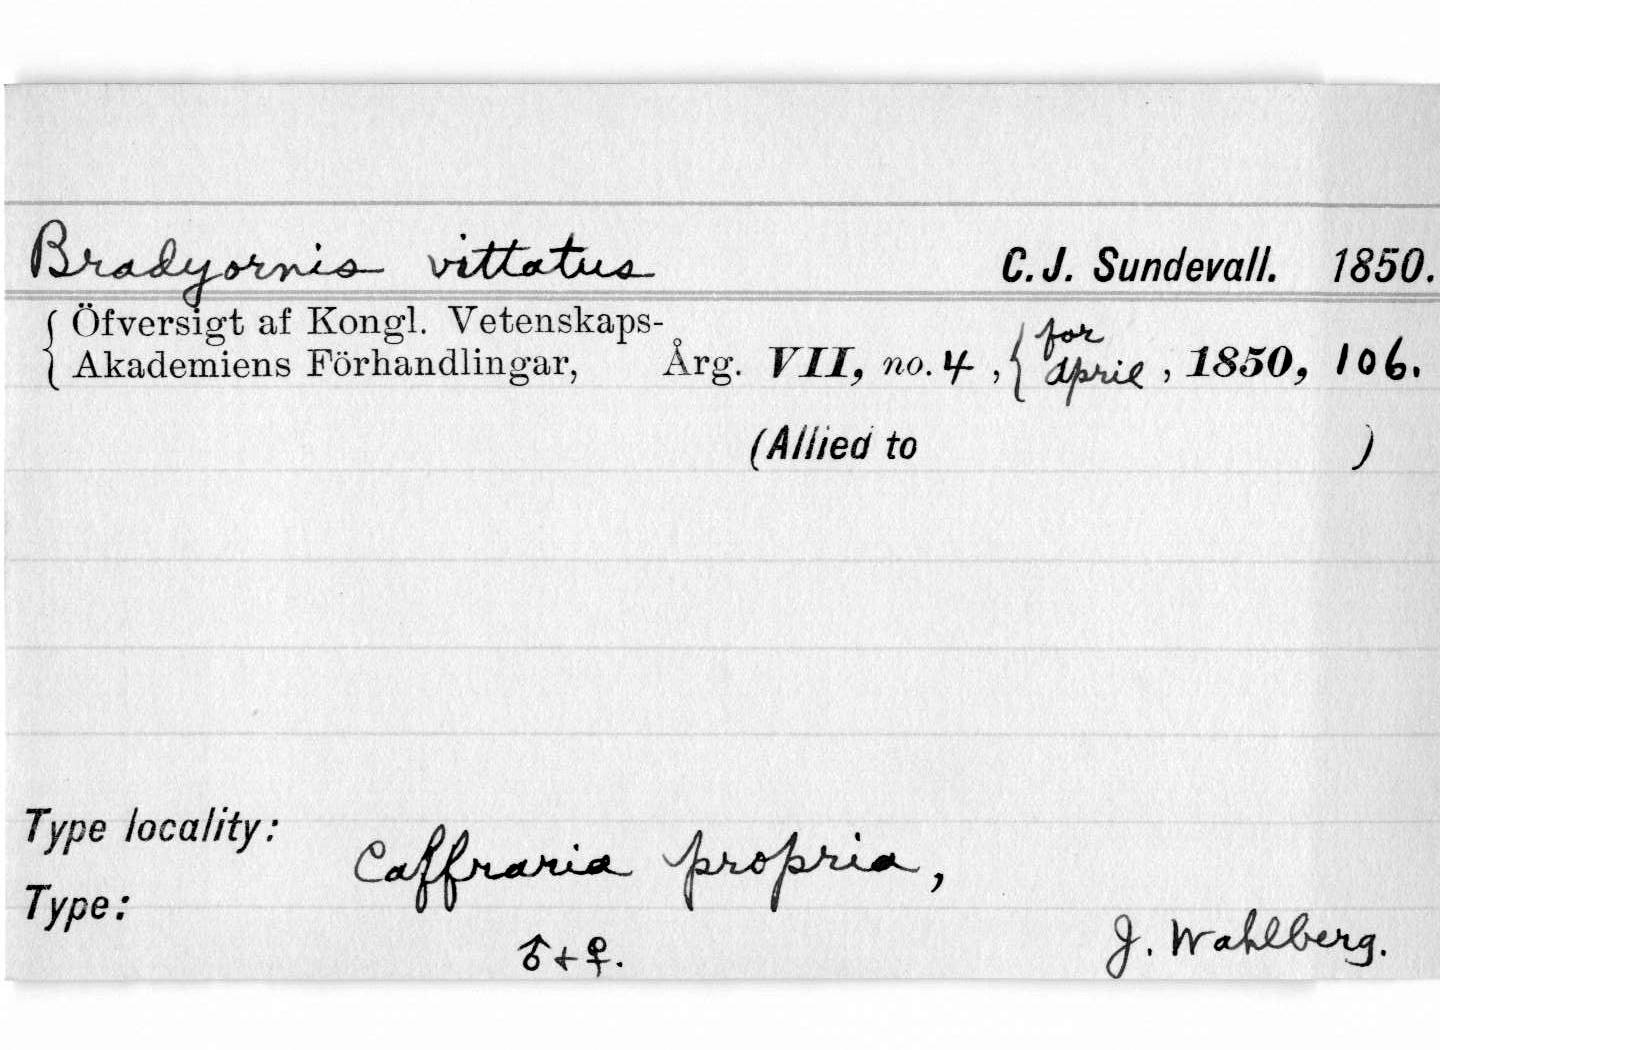 Bradyornis vittatus C. J. Sundevall. 1850.
{ Öfversigt af Kongl. Vetenskaps-
Akademiens Förhandlingar, Årg. VII, no. 4, { for April, 1850, 106.
(Allied to )
Type locality:
Caffraria propria,
Type:
♂ + ♀.
J. Wahlberg.